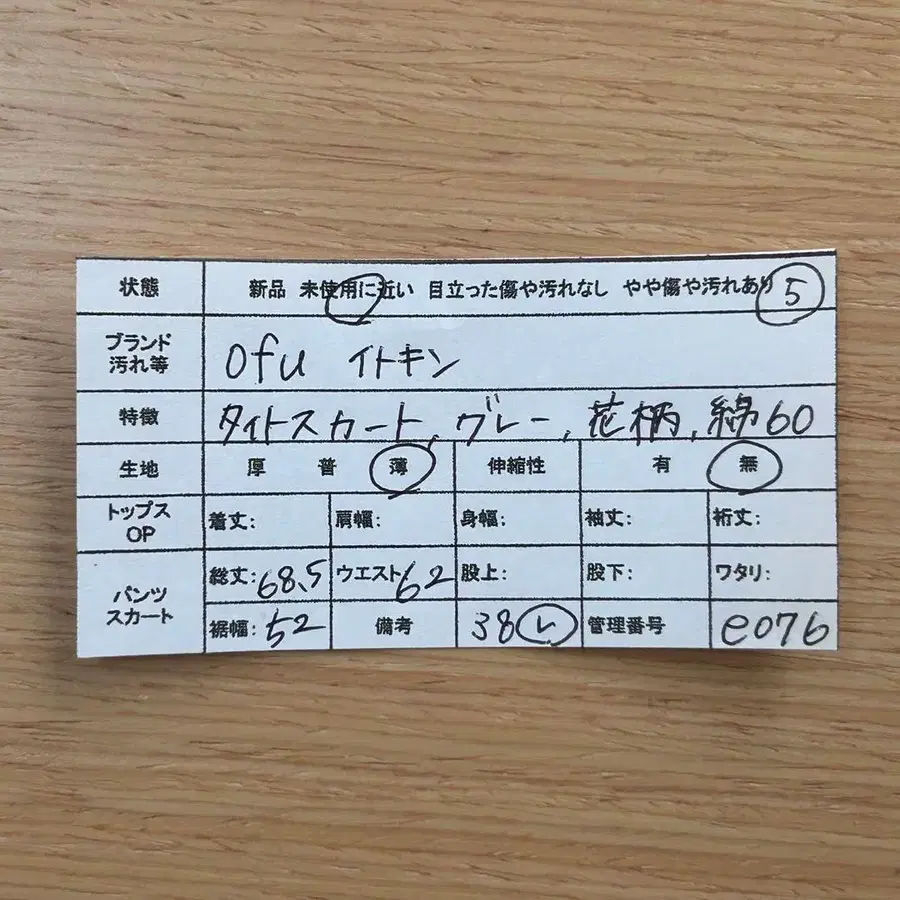 状態 新品 未使用に近い 目立った傷や汚れなし やや傷や汚れあり 5
ブランド
汚れ等 ofu イトキン
特徴 タイトスカート, グレー, 花柄, 綿60
生地 厚 普 薄 伸縮性 有 無
トップス
OP 着丈: 肩幅: 身幅: 袖丈: 裄丈:
パンツ
スカート 総丈:68.5 ウエスト62 股上: 股下: ワタリ:
裾幅:52 備考 38 レ 管理番号 e076